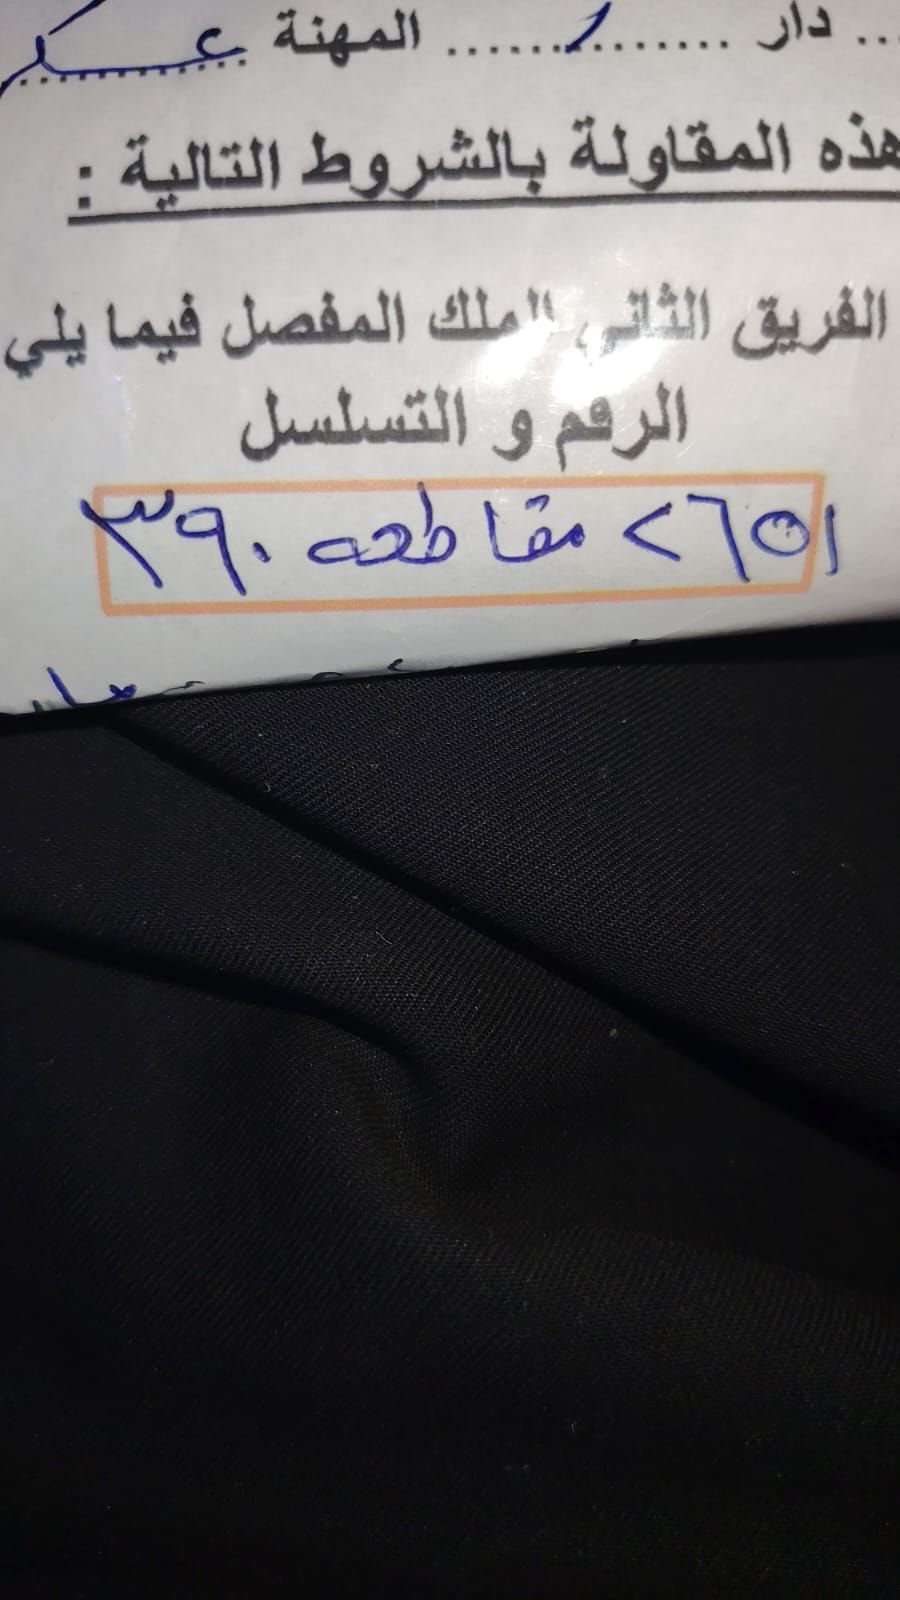 ... دار ............. المهنة ............
هذه المقاولة بالشروط التالية :
الفريق الثاني الملك المفصل فيما يلي
الرقم و التسلسل
٢٦٥١ مقاطعه ٣٩٠